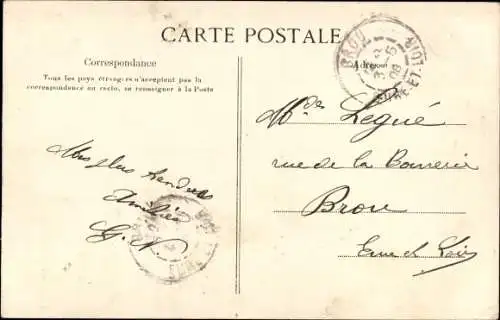 CARTE POSTALE
Correspondance
Tous les pays étrangers n'acceptent pas la
correspondance au recto, se renseigner à la Poste
Adresse
BROU
EURE-ET-LOIR
3 -5
08
Legué
rue de la
Brou
Eure et Loir
Mes plus tendres
Amitiés
G. N.